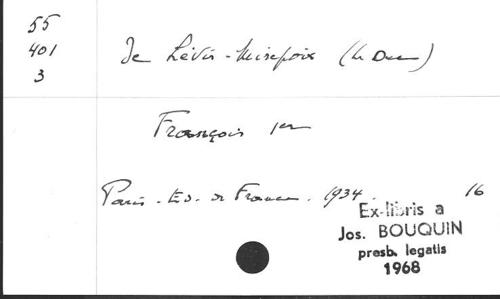 55
401
3
De Lévis-Mirepoix (le Duc)
François 1er
Paris - Ed. de France. 1934. 16
Ex-libris a
Jos. BOUQUIN
presb. legatis
1968